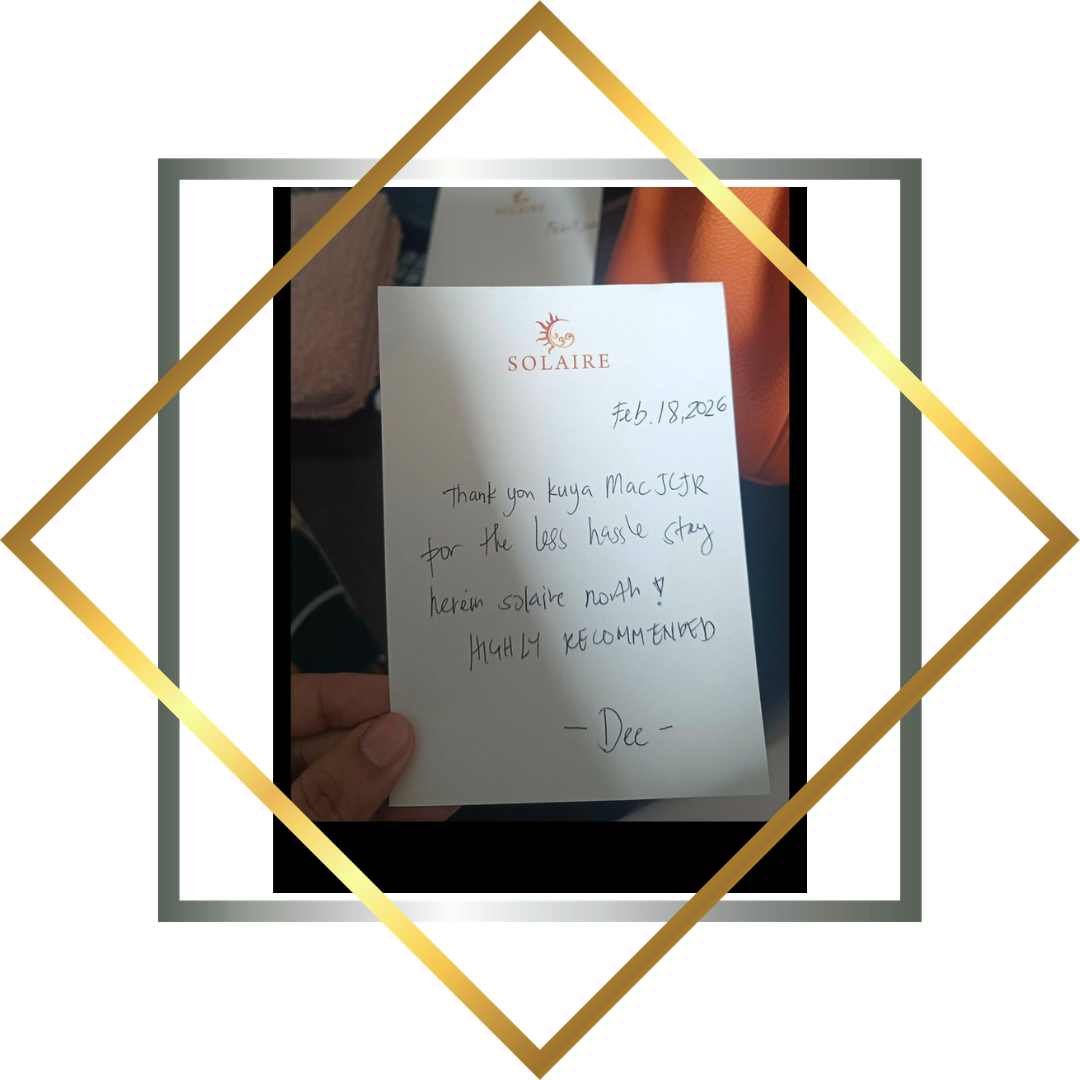 SOLAIRE
SOLAIRE
Feb. 18, 2026
Thank you kuya Mac JCJR
for the less hassle stay
herein solaire north !
HIGHLY RECOMMENDED
- Dee -